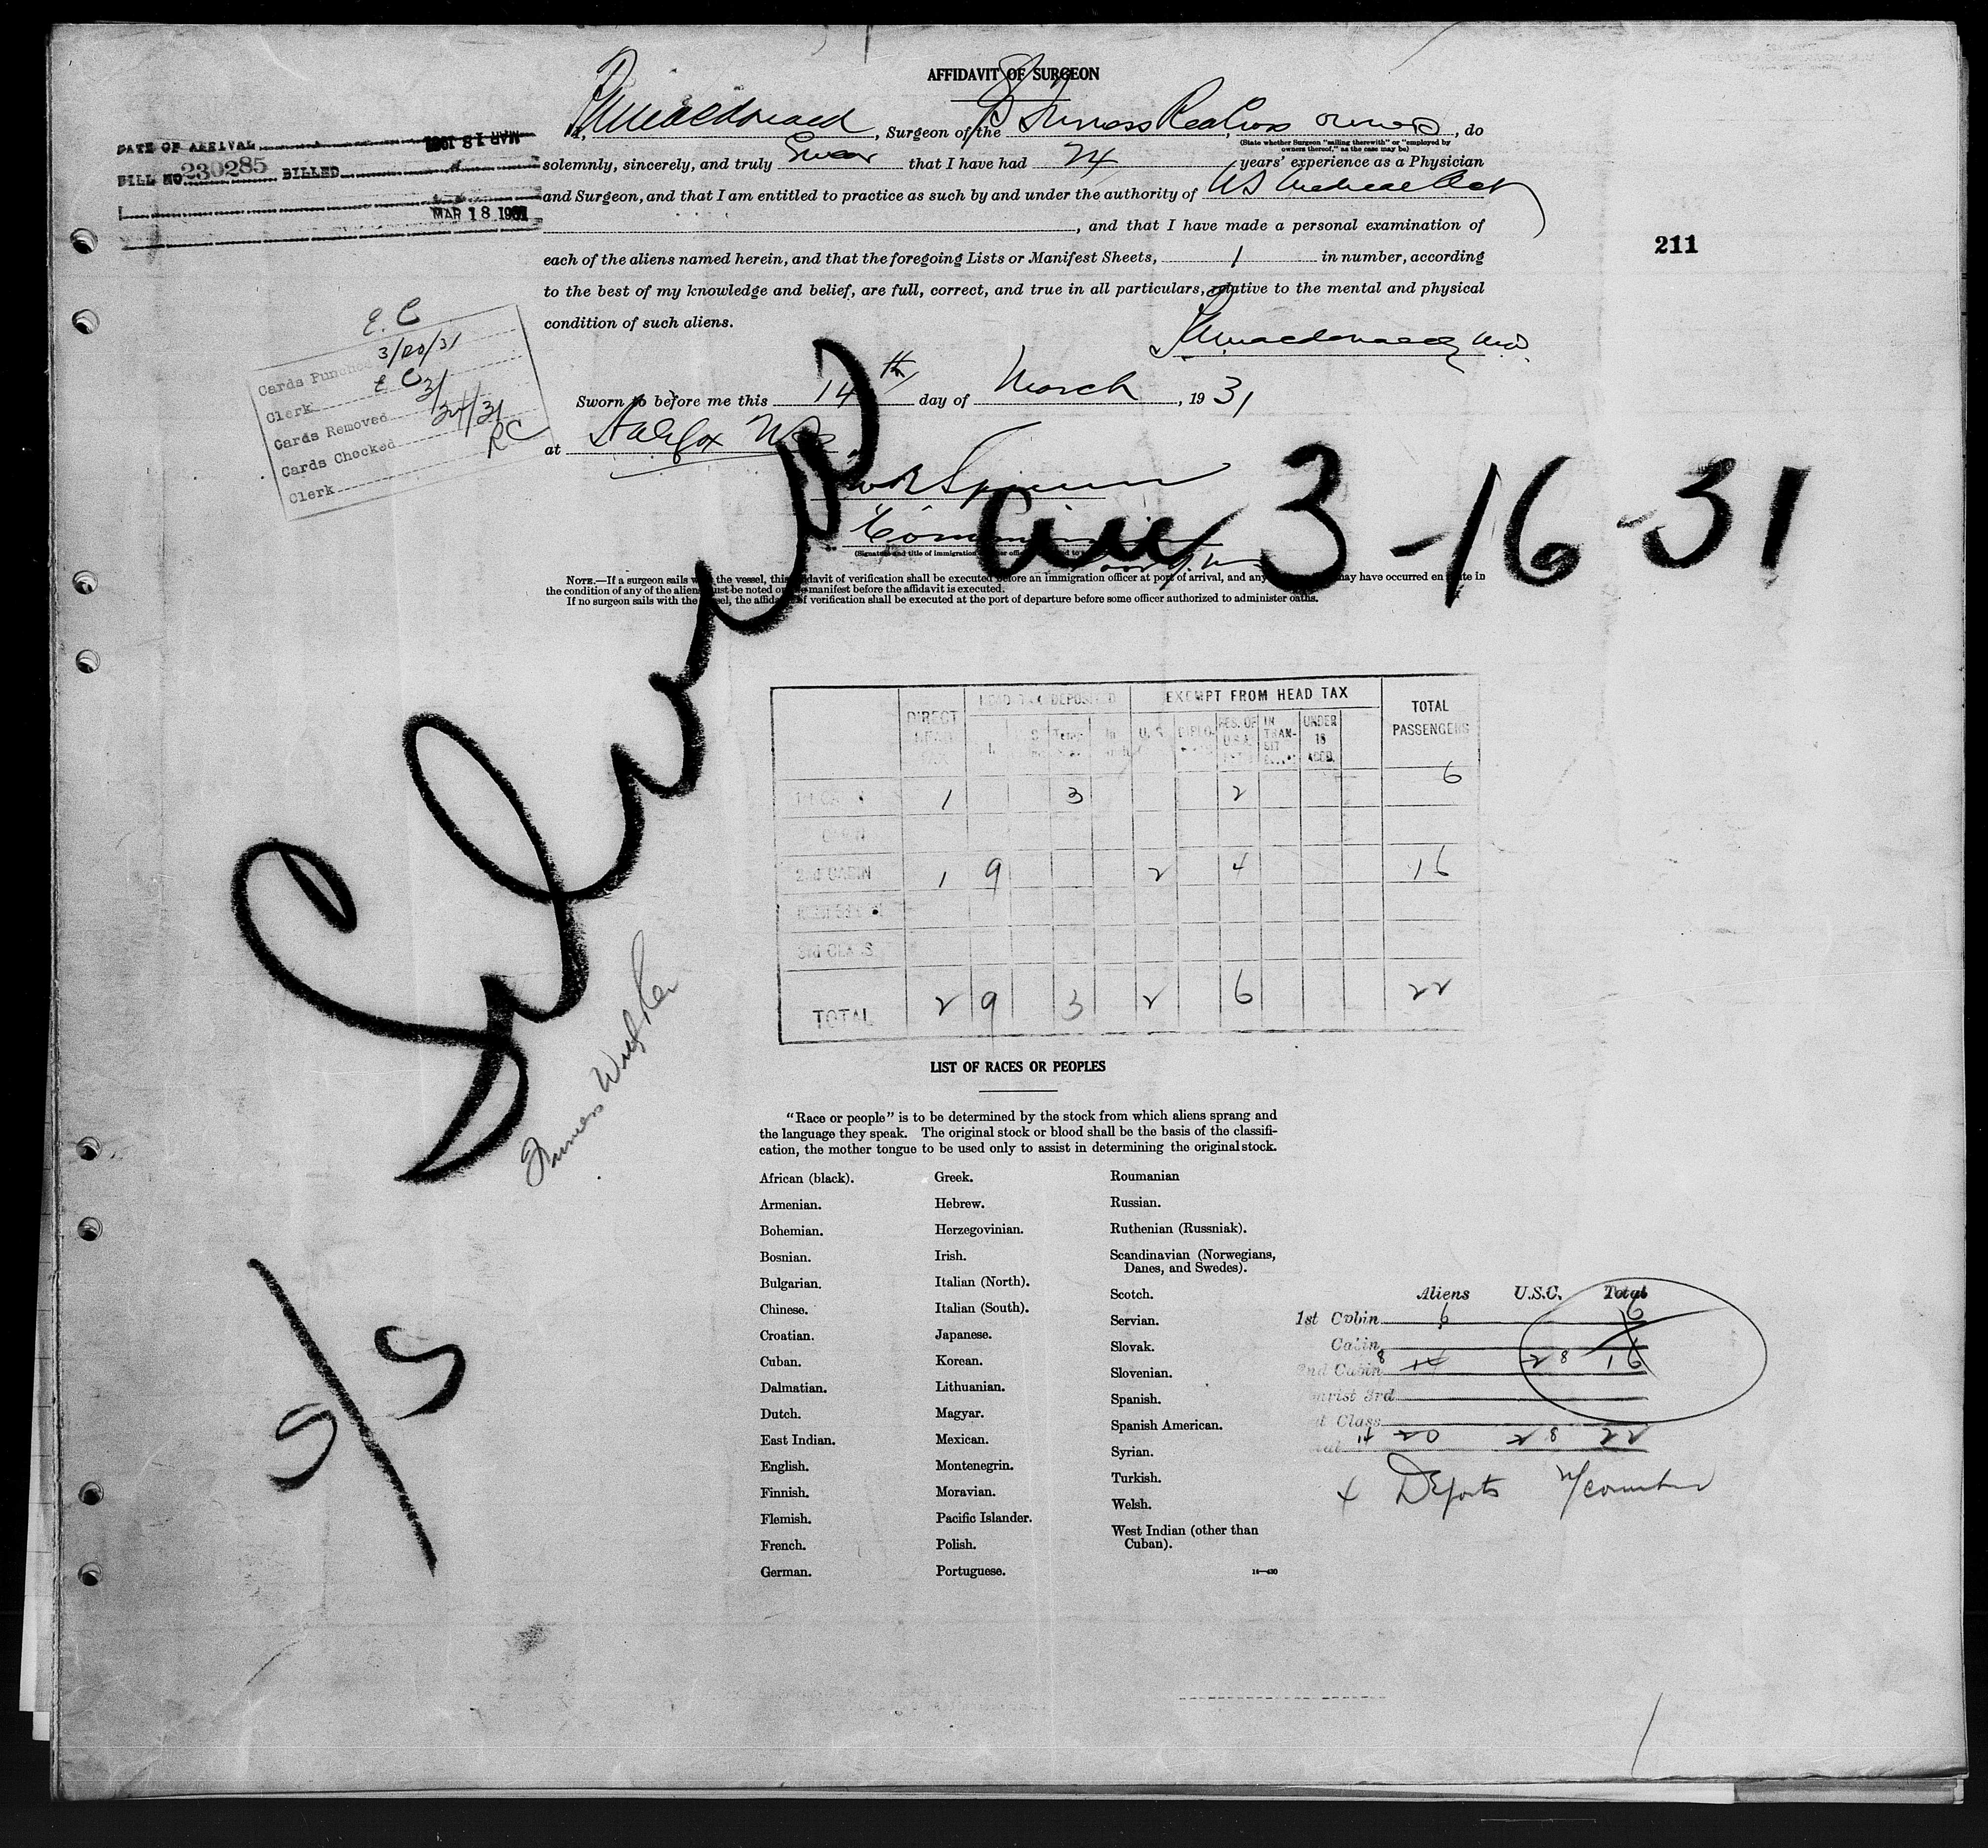 AFFIDAVIT OF SURGEON
DATE OF ARRIVAL MAR 18 1931
BILL NO. 230285 BILLED
MAR 18 1931
I, Macdonald, Surgeon of the Furness Red Cross owners, do
(State whether Surgeon "sailing therewith" or "employed by owners thereof," as the case may be)
solemnly, sincerely, and truly Swear that I have had 24 years' experience as a Physician
and Surgeon, and that I am entitled to practice as such by and under the authority of NS Medical Act
, and that I have made a personal examination of
each of the aliens named herein, and that the foregoing Lists or Manifest Sheets, 1 in number, according
to the best of my knowledge and belief, are full, correct, and true in all particulars, relative to the mental and physical
condition of such aliens.
211
Macdonald M.D.
E. C
Cards Punched 3/20/31
Clerk E C
Cards Removed 3/
Cards Checked 24/31
Clerk RC
Sworn to before me this 14th day of March, 1931
at Halifax N.S.
3-16-31
(Signature and title of immigration
NOTE.—If a surgeon sails with the vessel, this affidavit of verification shall be executed before an immigration officer at port of arrival, and any may have occurred en route in
the condition of any of the aliens must be noted on the manifest before the affidavit is executed.
If no surgeon sails with the vessel, the affidavit of verification shall be executed at the port of departure before some officer authorized to administer oaths.
DIRECT HEAD TAX HEAD TAX DEPOSITED EXEMPT FROM HEAD TAX TOTAL PASSENGERS
U.S. DIPLO- RES. OF U.S.A. IN TRAN-SIT UNDER 16 ACCD.
1st CABIN 1 3 2 6
CABIN
2nd CABIN 1 9 2 4 16
3rd CLASS
TOTAL 2 9 3 2 6 22
Furness
S/S
LIST OF RACES OR PEOPLES
"Race or people" is to be determined by the stock from which aliens sprang and
the language they speak. The original stock or blood shall be the basis of the classifi-
cation, the mother tongue to be used only to assist in determining the original stock.
African (black).
Armenian.
Bohemian.
Bosnian.
Bulgarian.
Chinese.
Croatian.
Cuban.
Dalmatian.
Dutch.
East Indian.
English.
Finnish.
Flemish.
French.
German.
Greek.
Hebrew.
Herzegovinian.
Irish.
Italian (North).
Italian (South).
Japanese.
Korean.
Lithuanian.
Magyar.
Mexican.
Montenegrin.
Moravian.
Pacific Islander.
Polish.
Portuguese.
Roumanian
Russian.
Ruthenian (Russniak).
Scandinavian (Norwegians,
Danes, and Swedes).
Scotch.
Servian.
Slovak.
Slovenian.
Spanish.
Spanish American.
Syrian.
Turkish.
Welsh.
West Indian (other than
Cuban).
14—430
Aliens U.S.C. Total
1st Cabin 6 6
Cabin
2nd Cabin 8 14 2 8 16
Tourist 3rd
Class
14 20 2 8 22